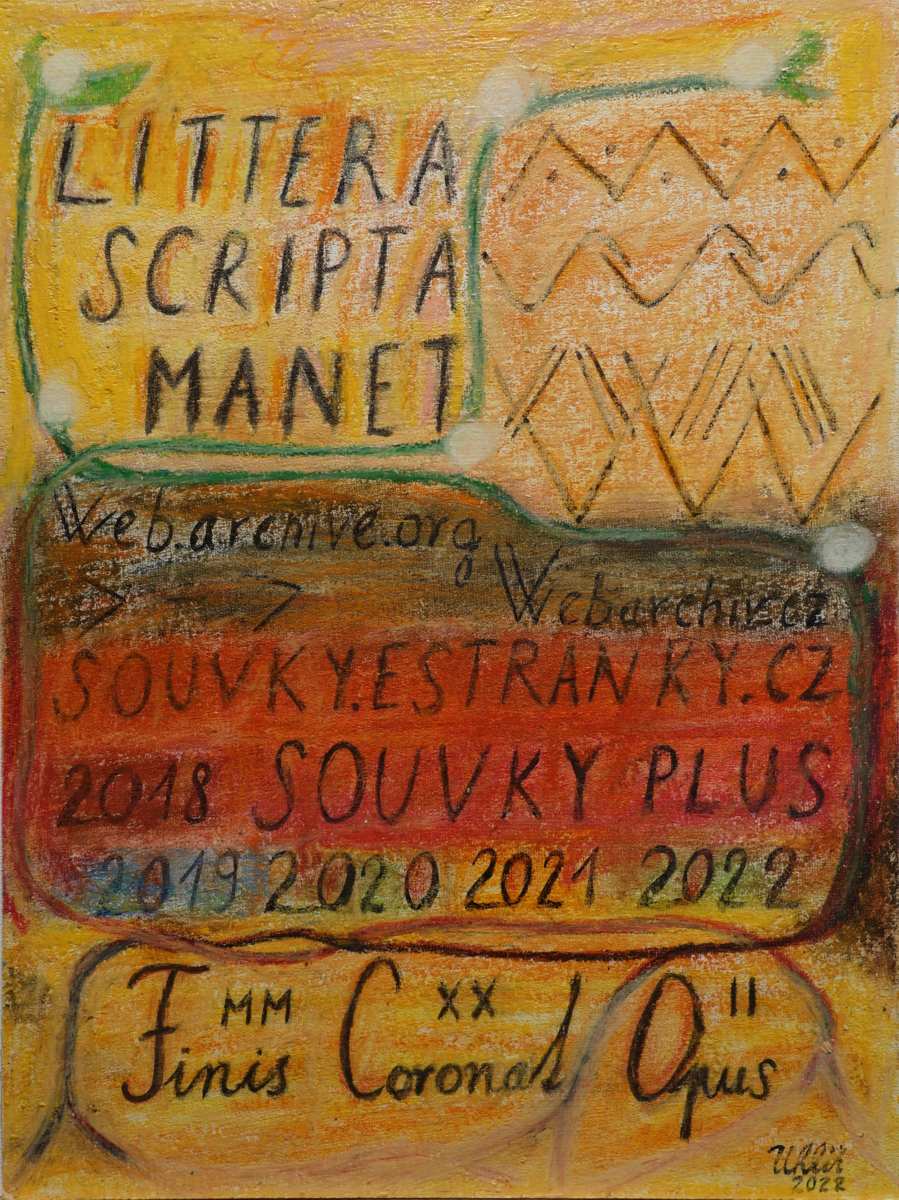 LITTERA
SCRIPTA
MANET
Web.archive.org
Webarchiv.cz
SOUVKY.ESTRANKY.CZ
2018 SOUVKY PLUS
2019 2020 2021 2022
MM XX II
Finis Coronat Opus
2022